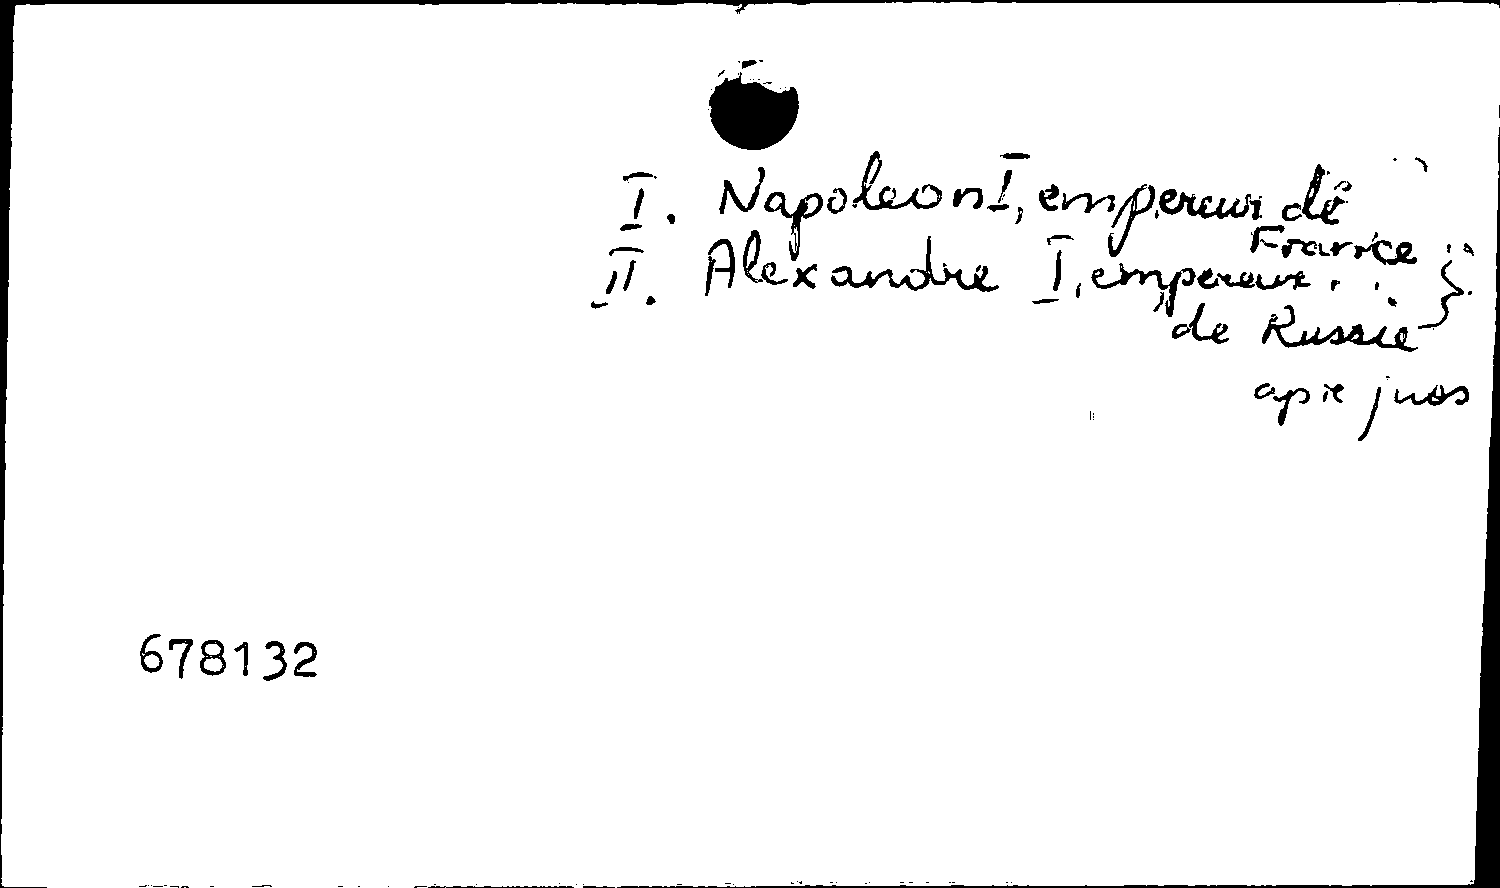 I. Napoleon I, empereur de
France
II. Alexandre I, empereur }
de Russie
apie juos
678132